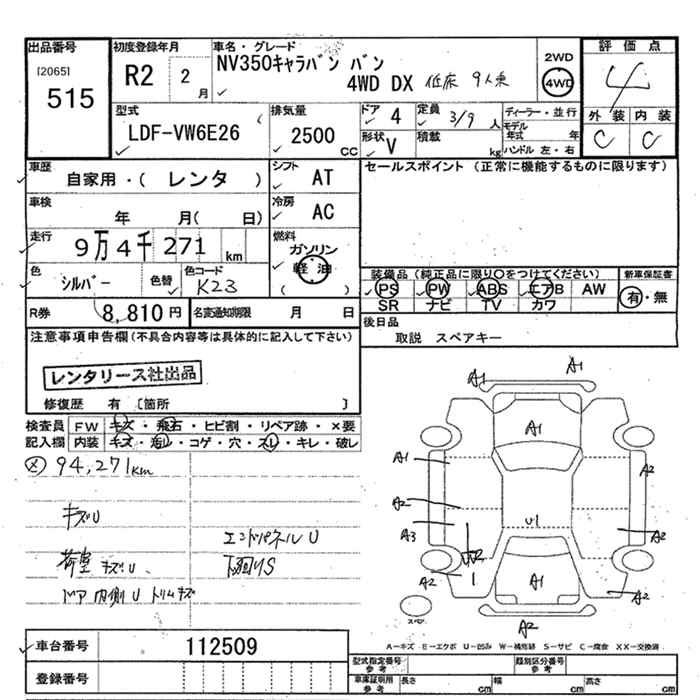 出品番号 初度登録年月 車名・グレード 2WD 評価点
[2065] 515 R2 2月 NV350キャラバン バン 4WD DX 低床 9人乗 4WD 4
型式 排気量 ドア 4 定員 3/9人 ディーラー・並行 外装 内装
LDF-VW6E26 2500CC 形状 V 積載 kg モデル年式 年 C C
ハンドル 左・右
車歴 シフト セールスポイント (正常に機能するものに限ります)
自家用・( レンタ ) AT
車検 冷房
年 月( 日) AC
走行 燃料
9万4千271km ガソリン
軽油
( )
色 色替 色コード 装備品 (純正品に限り○をつけてください) 新車保証書
シルバー K23 PS PW ABS エアB AW 有・無
SR ナビ TV カワ
R券 8,810円 名変通知期限 月 日 後日品
取説 スペアキー
注意事項申告欄(不具合内容等は具体的に記入して下さい)
レンタリース社出品
修復歴 有 〔箇所 〕
検査員 FW キズ・飛石・ヒビ割・リペア跡・×要
記入欄 内装 キズ・汚レ・コゲ・穴・スレ・キレ・破レ
94,271km
キズU
エンドパネルU
荷室 キズU 下廻りS
ドア内側U トリムキズ
A1 A1
A1
A1 A2
A2
A3 U1 A2
W2
A2 1 A1 A2
スペア A2
A-キズ E-エクボ U-凹み W-補修跡 S-サビ C-腐食 XX-交換済
車台番号 112509
型式指定番号 参考 類別区分番号 参考
登録番号 車庫証明用 参考 長さ cm 幅 cm 高さ cm